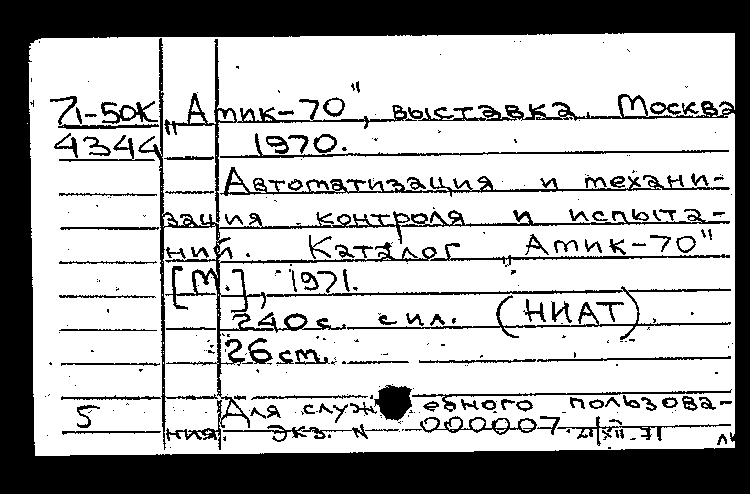 71-50К „Атик-70", выставка. Москва
4344 1970.
Автоматизация и механи-
зация контроля и испыта-
ний. Каталог „Атик-70"
[М.], 1971.
240 с. с ил. (НИАТ).
26 см.
5 Для служебного пользова-
ния. Экз. N 000007. 21/XII-71